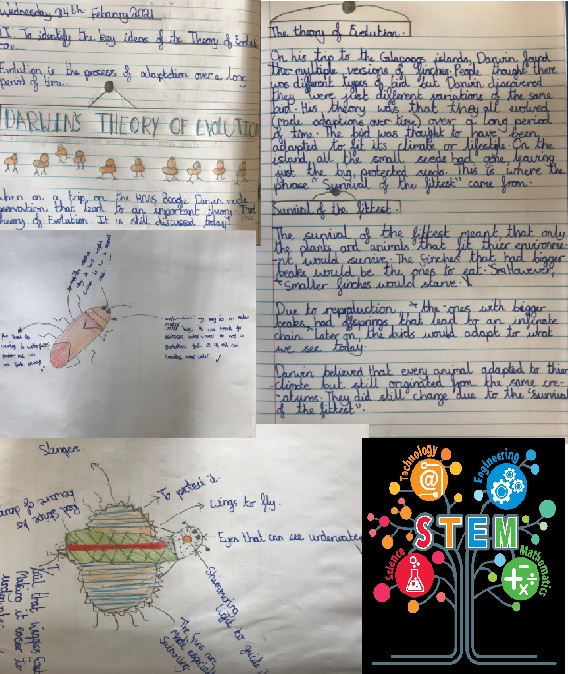 Wednesday 24th February 2021
To identify the key ideas of the Theory of
Evolution is the process of adaptation over a long
period of time.
DARWIN'S THEORY OF EVOLUTION
When on a trip on the HMS Beagle Darwin made
observation that lead to an important theory. The
theory of Evolution. It is still discussed today.
The theory of Evolution.
On his trip to the Galapogs islands, Darwin found
multiple versions of finches. People thought there
was different types of bird but Darwin discovered
they were just different variations of the same
bird. His theory was that they all evolved
(made adaptions over time) over a long period
of time. The bird was thought to have been
adapted to fit its climate or lifestyle. On the
island all the small seeds had gone, leaving
just the big protected seeds. This is where the
phrase "Survival of the fittest" came from.
Survival of the fittest.
The survival of the fittest meant that only
the plants and animals that fit thier environme-
nt would survive. The finches that had bigger
beaks would be the ones to eat. However,
smaller finches would starve.
Due to reproduction the ones with bigger
beaks had offsprings that lead to an infinate
chain. Later on, the birds would adapt to what
we see today.
Darwin believed that every animal adapted to thier
climate but still originated from the same cre-
atures. They did still change due to the "survival
of the fittest".
Stingers
To protect it.
Wings to fly.
Eyes that can see underwater
Shimmering
light to guide
The fins are
made especially
Swimming
Tail that
Making it easier to
Technology
Engineering
STEM
Science
Mathematics